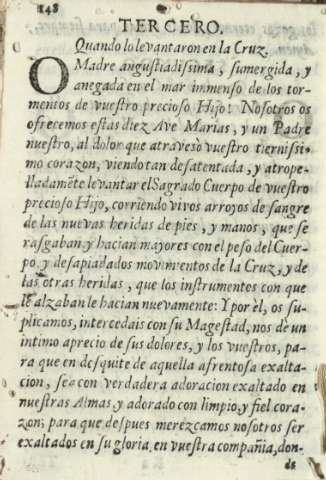 148
TERCERO.
Quando lo levantaron en la Cruz.
O Madre angustiadissima, sumergida, y
anegada en el mar immenso de los tor-
mentos de vuestro precioso Hijo! Nosotros os
ofrecemos estas diez Ave Marias, y un Padre
nuestro, al dolor que atravesò vuestro ternissi-
mo corazon, viendo tan desatentada, y atrope-
lladamẽte levantar el Sagrado Cuerpo de vuestro
precioso Hijo, corriendo vivos arroyos de sangre
de las nuevas heridas de pies, y manos, que se
rasgaban, y hacian mayores con el peso del Cuer-
po, y desapiadados movimientos de la Cruz, y de
las otras heridas, que los instrumentos con que
le alzaban le hacian nuevamente: Y por èl, os su-
plicamos, intercedais con su Magestad, nos dè un
intimo aprecio de sus dolores, y los vuestros, pa-
ra que en desquite de aquella afrentosa exalta-
cion, sea con verdadera adoracion exaltado en
nuestras Almas, y adorado con limpio, y fiel cora-
zon; para que despues merezcamos nosotros ser
exaltados en su gloria, en vuestra compañia, don-
de